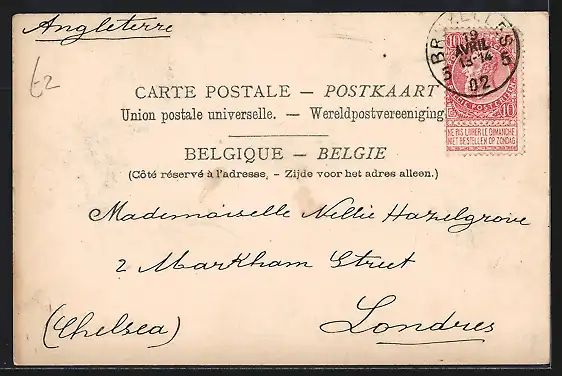 Angleterre
£2
BRUXELLES
5 5
19
AVRIL
13-14
02
10 10
10
NE PAS LIVRER LE DIMANCHE
NIET BESTELLEN OP ZONDAG
CARTE POSTALE — POSTKAART
Union postale universelle. — Wereldpostvereeniging
BELGIQUE — BELGIE
(Côté réservé à l'adresse, - Zijde voor het adres alleen.)
Mademoiselle Nellie Hazelgrove
2 Markham Street
(Chelsea) Londres